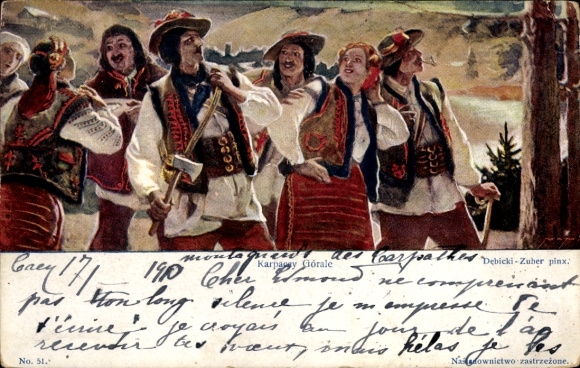 montagnards des Carpathes
Karpaccy Górale
Dębicki-Zuber pinx.
Caen 17/1 190
Cher Edmond ne comprenant
pas ton long silence je m'empresse de
t'écrire je croyais au jour de l'an
recevoir tes vœux, mais hélas je les
No. 51.
Naśladownictwo zastrzeżone.